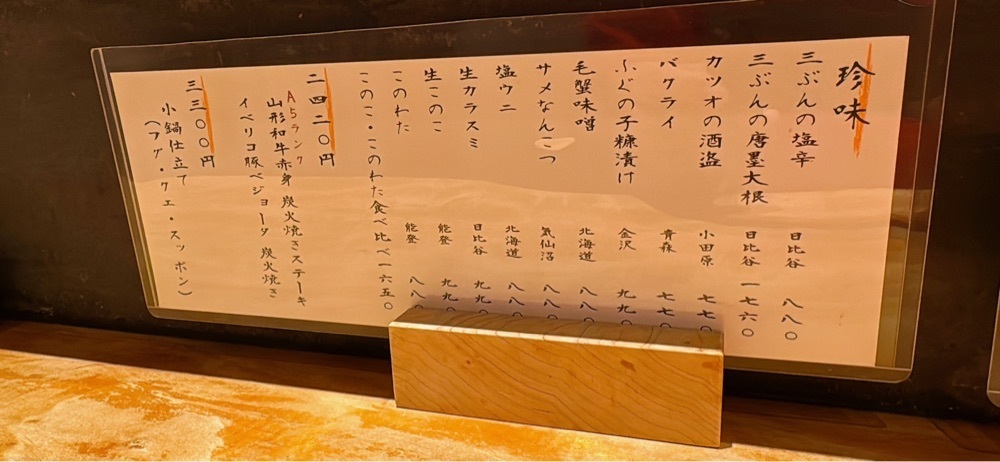 珍味
三ぶんの塩辛 日比谷 八八〇
三ぶんの唐墨大根 日比谷 一七六〇
カツオの酒盗 小田原 七七〇
バクライ 青森 七七〇
ふぐの子糠漬け 金沢 九九〇
毛蟹味噌 北海道 八八〇
サメなんこつ 気仙沼 八八〇
塩ウニ 北海道 八八〇
生カラスミ 日比谷 九九〇
生このこ 能登 九九〇
このわた 能登 八八
このこ・このわた食べ比べ 一六五〇
二四二〇円
A5ランク
山形和牛赤身 炭火焼きステーキ
イベリコ豚ベジョータ 炭火焼き
三三〇〇円
小鍋仕立て
(フグ・クエ・スッポン)